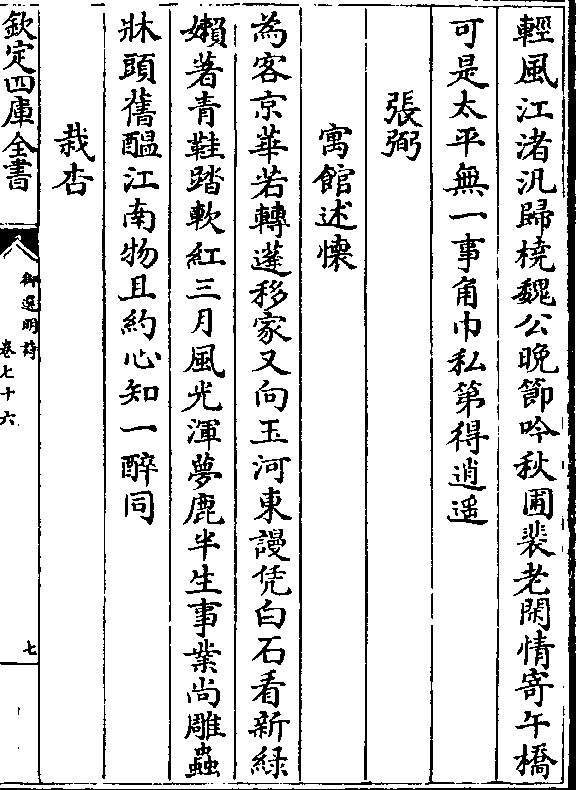 輕風江渚汎歸橈魏公晚節吟秋圃裴老閑情寄午橋
可是太平無一事角巾私第得逍遥
張弼
寓館述懷
為客京華若轉蓬移家又向玉河東謾凭白石看新綠
嬾著青鞋踏軟紅三月風光渾夢鹿半生事業尚雕蟲
牀頭舊醖江南物且約心知一醉同
栽杏
欽定四庫全書
御選明詩
卷七十六
七